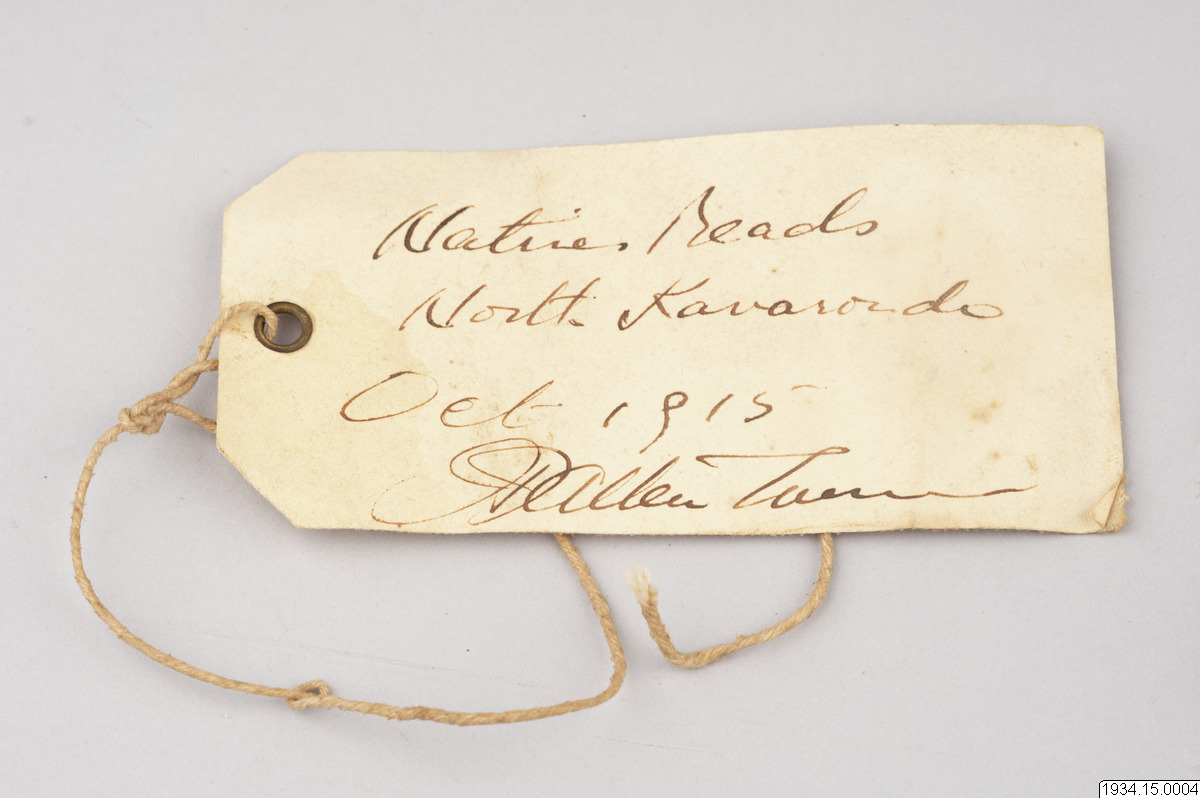 Native Beads
North Kavarondo
Oct 1915
Allen Turner
1934.15.0004